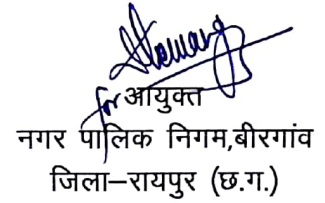 for आयुक्त
नगर पालिक निगम,बीरगांव
जिला–रायपुर (छ.ग.)